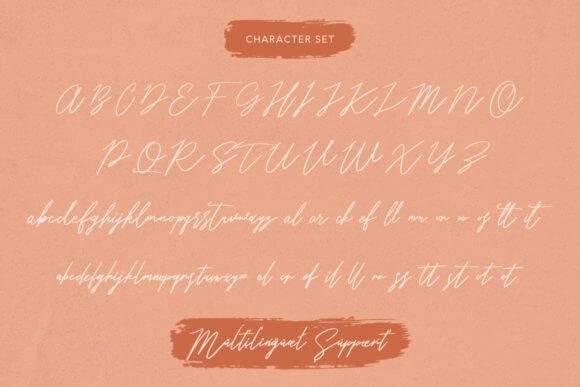 CHARACTER SET
A B C D E F G H I J K L M N O
P Q R S T U V W X Y Z
abcdefghijklmnopqrstuvwxyz al ar ck ef ll mm on oo of tt it
abcdefghijklmnopqrstuvwxyz al er of il ll ss tt st ot et
Multilingual Support